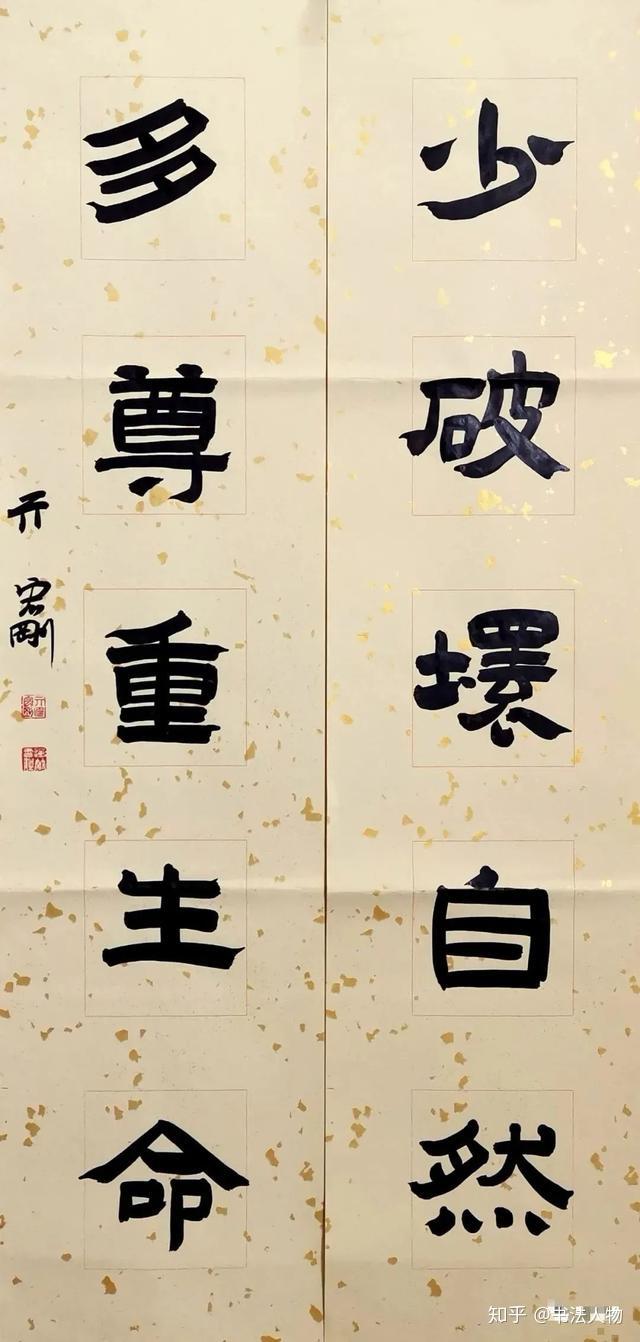 少破壞自然
多尊重生命
亓宏剛
知乎 @书法人物